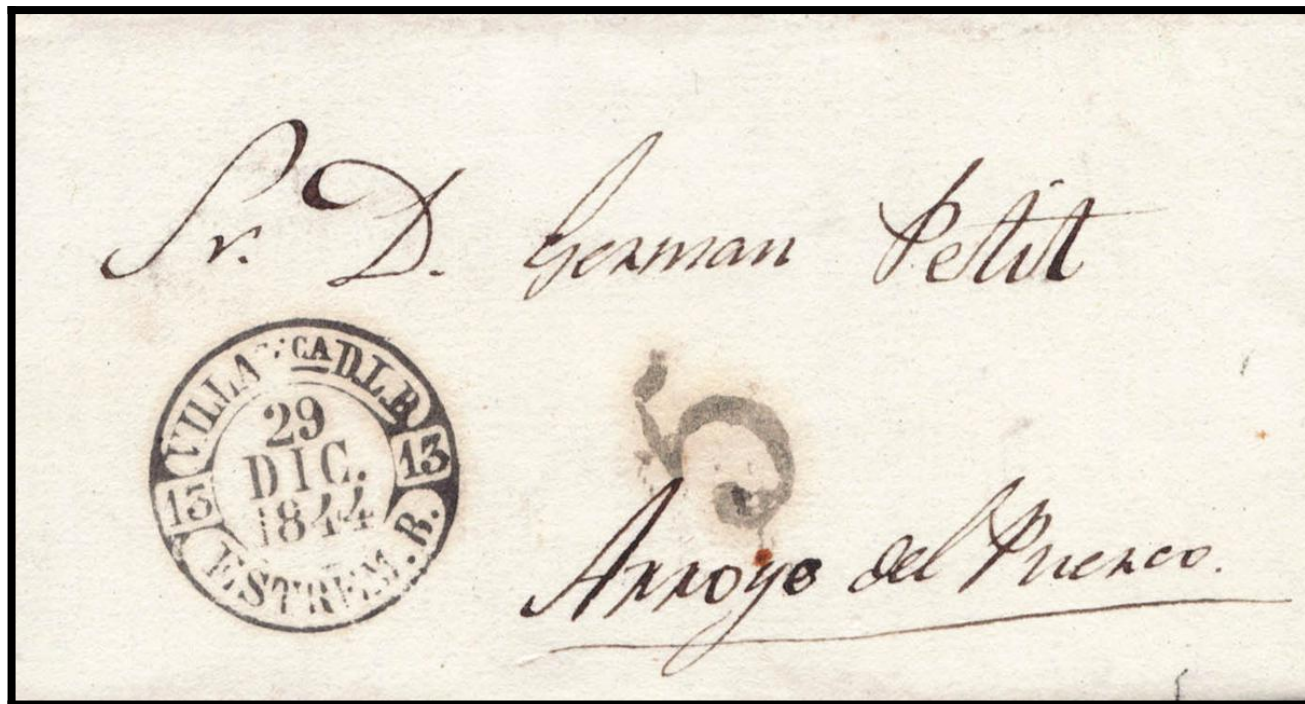 Sr. D. German Petit
VILLA CA D.L.B
29
DIC.
1844
13 13
ESTREM. B.
5
Arroyo del Puerco.